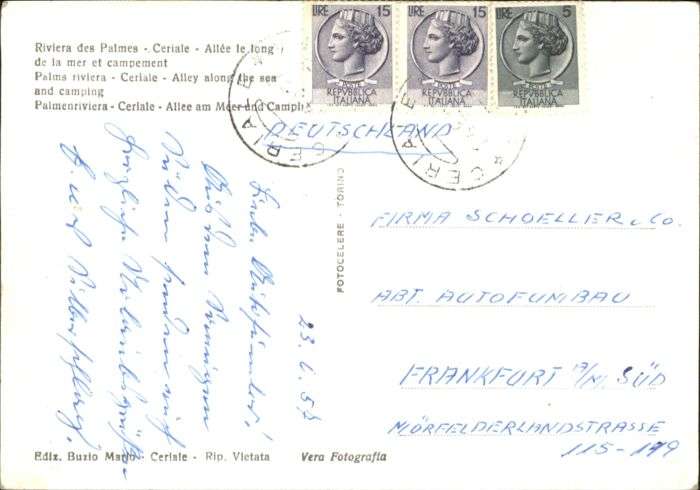 Riviera des Palmes - Ceriale - Allée le long
de la mer et campement
Palms riviera - Ceriale - Alley along the sea
and camping
Palmenriviera - Ceriale - Allee am Meer und Campi
LIRE 15
POSTE
REPVBBLICA
ITALIANA
LIRE 15
POSTE
REPVBBLICA
ITALIANA
LIRE 5
POSTE
REPVBBLICA
ITALIANA
CERIALE
CERIALE
DEUTSCHLAND
FOTOCELERE - TORINO
23. 6. 57
Liebe
Aus dem sonnigen
Süden senden wir
herzliche
FIRMA SCHOELLER u. Co.
ABT. AUTOFUNBAU
FRANKFURT a/M. SÜD
MÖRFELDERLANDSTRASSE
115-179
Ediz. Buzio Mario - Ceriale - Rip. Vietata
Vera Fotografia